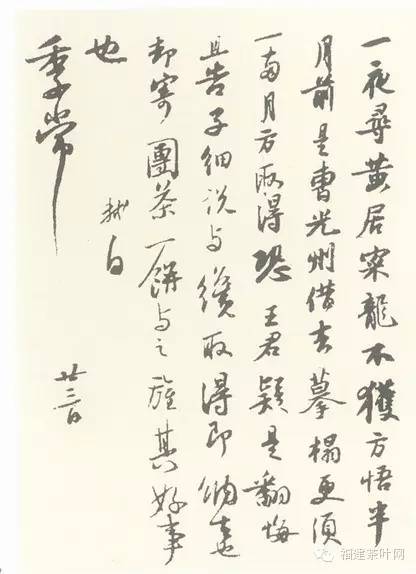 一夜尋黃居寀龍不獲方悟半
月前是曹光州借去摹搨更須
一兩月方取得恐王君疑是翻悔
且告子細說與纔取得即納去也
却寄團茶一餅與之旌其好事
也
軾白
季常
廿三日
福建茶叶网